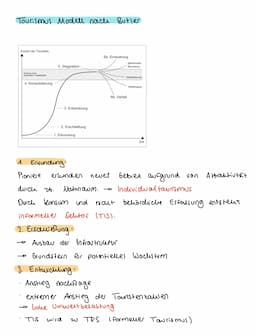 Tourismus Modell nach Butler
Anzahl der Touristen
6a. Erneuerung
5. Stagnation
4. Konsolidierung
3. Entwicklung
6b. Verfall
2. Erschließung
1. Erkundung
Zeit
1. Erkundung
Pioniere erkunden neues Gebiet aufgrund von Attraktivität
durch z.B. Naturraum. → Individualtourismus
Durch Konsum und nicht behördliche Erfassung entsteht
informeller Sektor (TIS).
2. Erschließung
→ Ausbau der Infrastruktur
→ Grundstein für potentielles Wachstum
3. Entwicklung
- Anstieg Nachfrage
- extremer Anstieg der Touristenzahlen
→ hohe Umweltbelastung
- TIS wird zu TFS (formeller Tourismus)